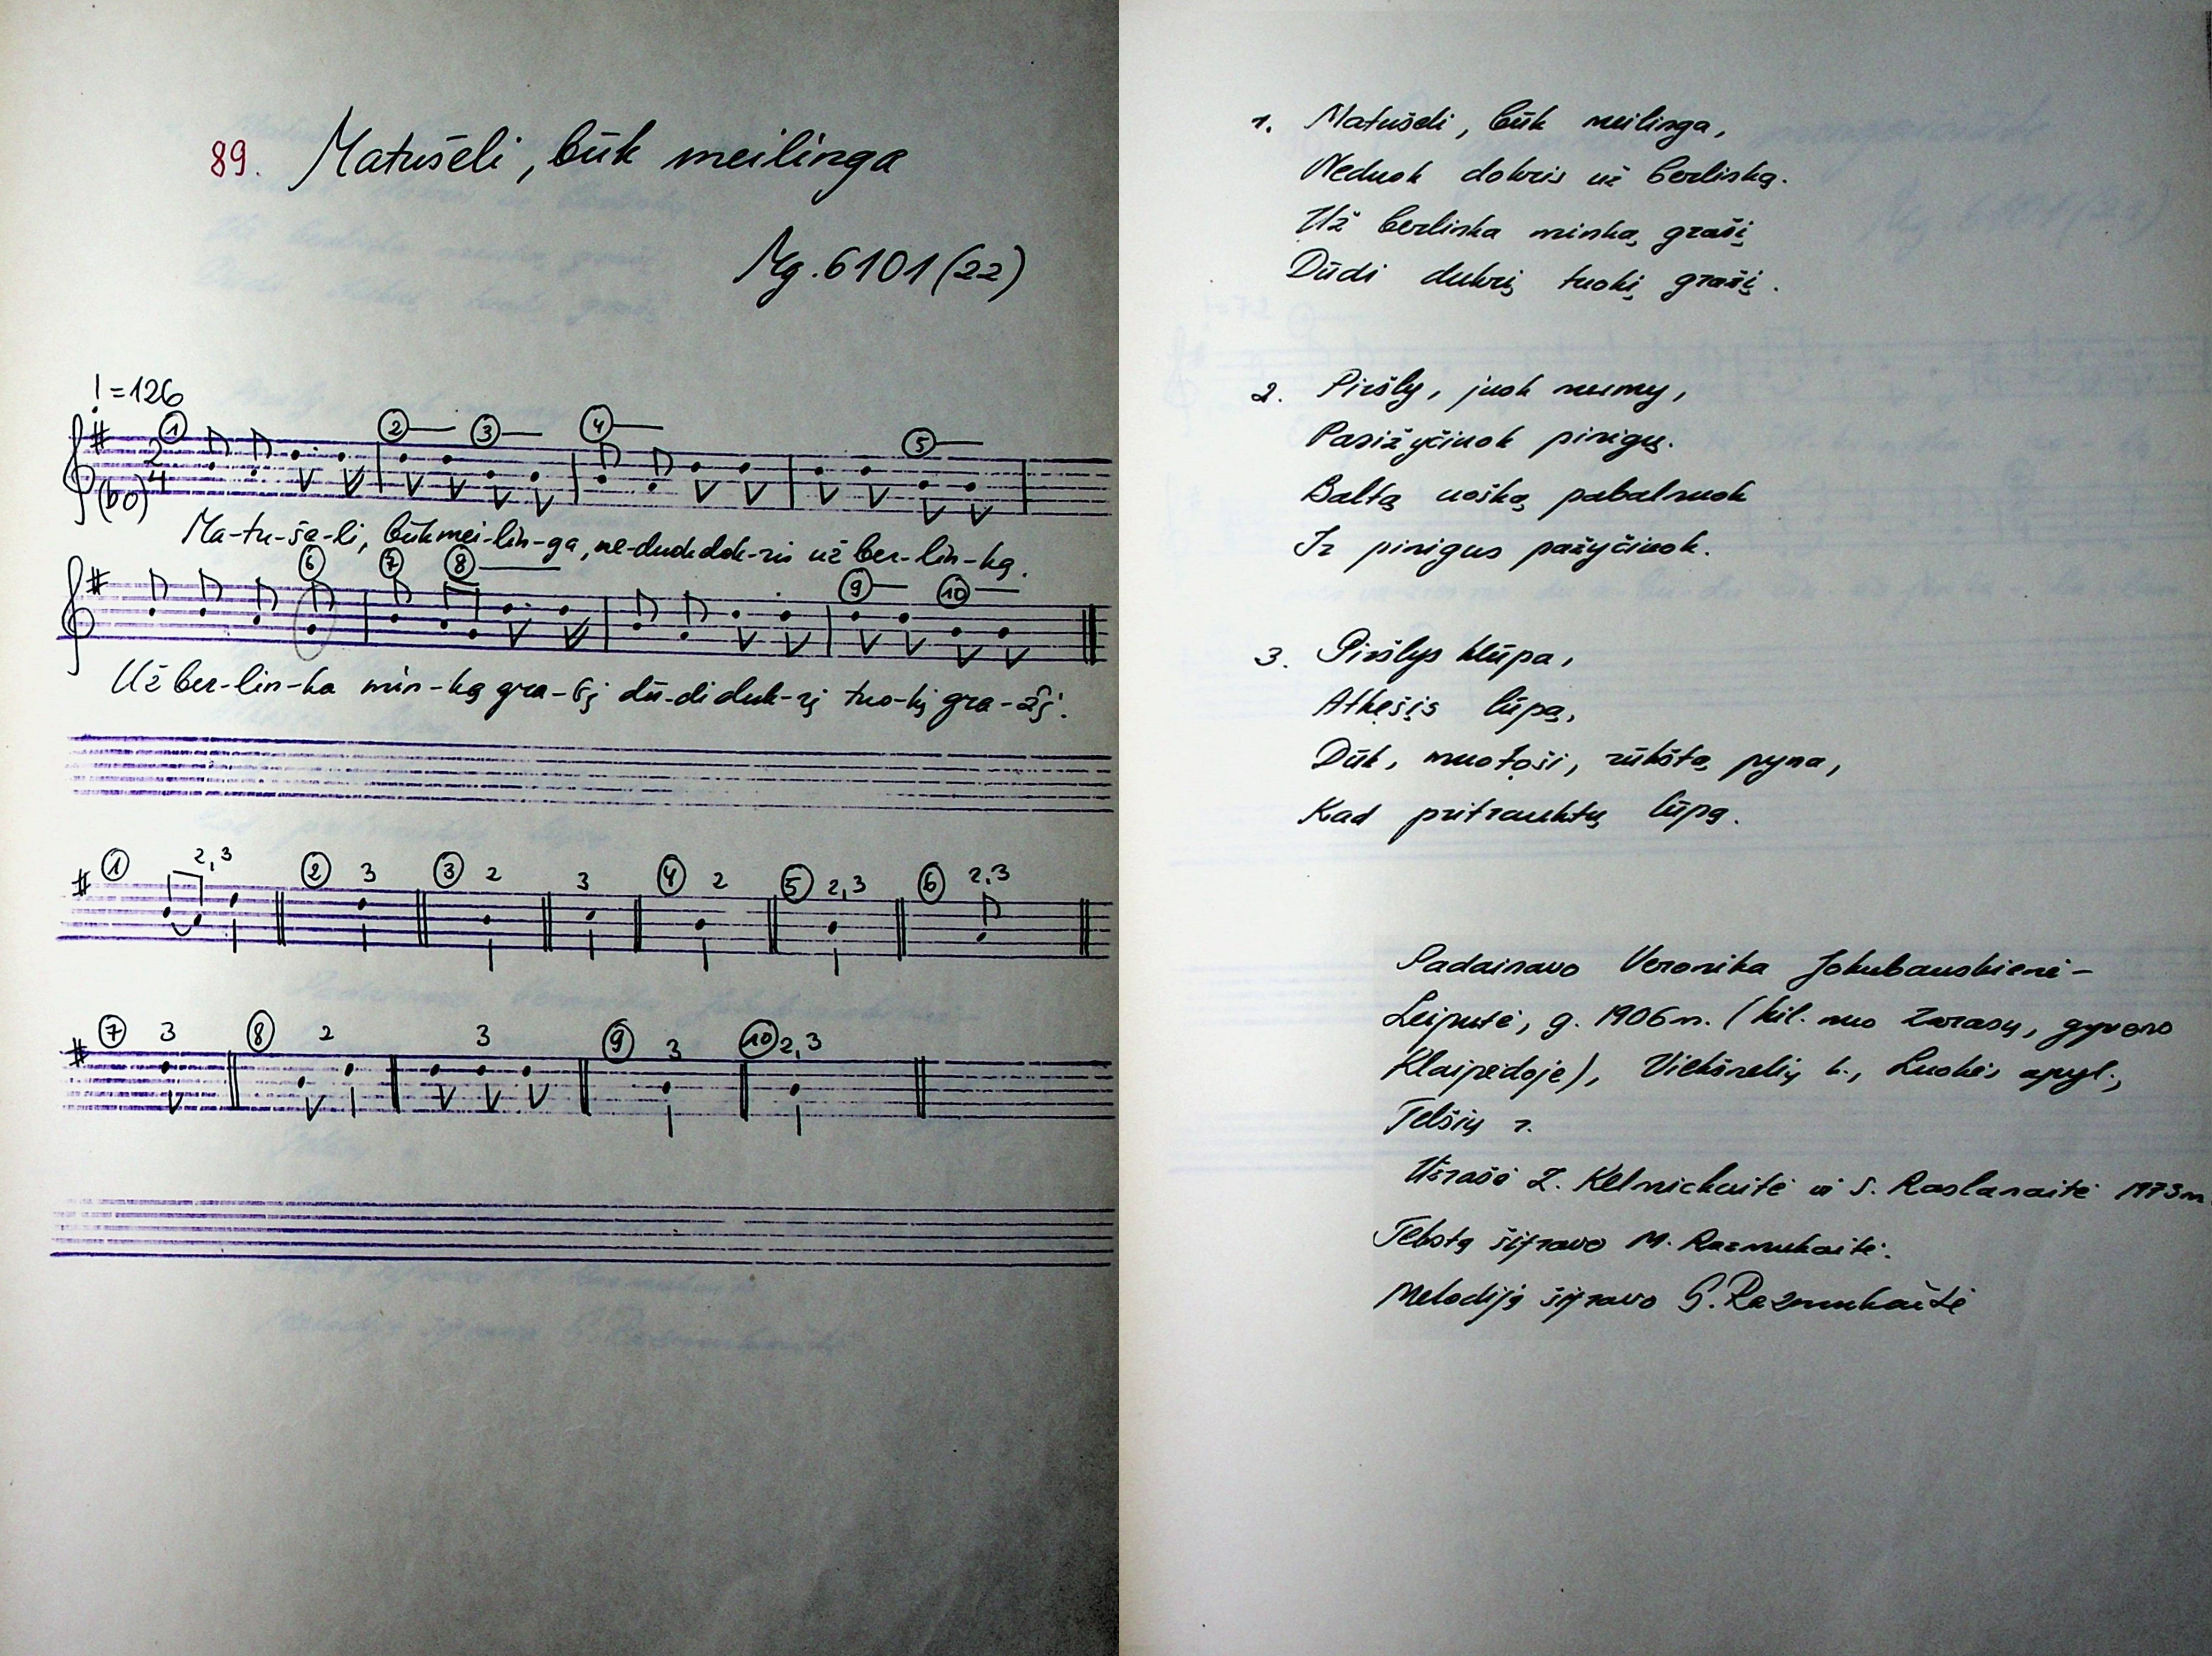 89. Matušeli, būk meilinga
Mg. 6101 (22)
= 126
1 2 3 4 5
2
4
(bo)
Ma-tu-še-li, būk mei-lin-ga, ne-duok dok-ris už ber-lin-ką.
6 7 8 9 10
Už ber-lin-ka min-ką gra-šį dū-di duk-rį tuo-kį gra-žį.
1 2,3 2 3 3 2 3 4 2 5 2,3 6 2,3
7 3 8 2 3 9 3 10 2,3
1. Matušeli, būk meilinga,
Neduok dokris už berlinką.
Už berlinka minką grašį
Dūdi dukrį tuokį gražį.
2. Piršly, juok numy,
Pasižyčiuok pinigų.
Baltą uošką pabalnuok
Ir pinigus pažyčiuok.
3. Piršlys klūpa,
Atkęšįs lūpą,
Dūk, muotoši, rūkštą pyna,
Kad pritrauktų lūpą.
Padainavo Veronika Jokubauskienė-
Leiputė, g. 1906 m. (kil. nuo Zarasų, gyveno
Klaipėdoje), Viekšnelių k., Luokės apyl.,
Telšių r.
Užrašė Z. Kelmickaitė ir S. Raslanaitė 1973 m
Tekstą šifravo M. Razmukaitė.
Melodiją šifravo G. Razmukaitė